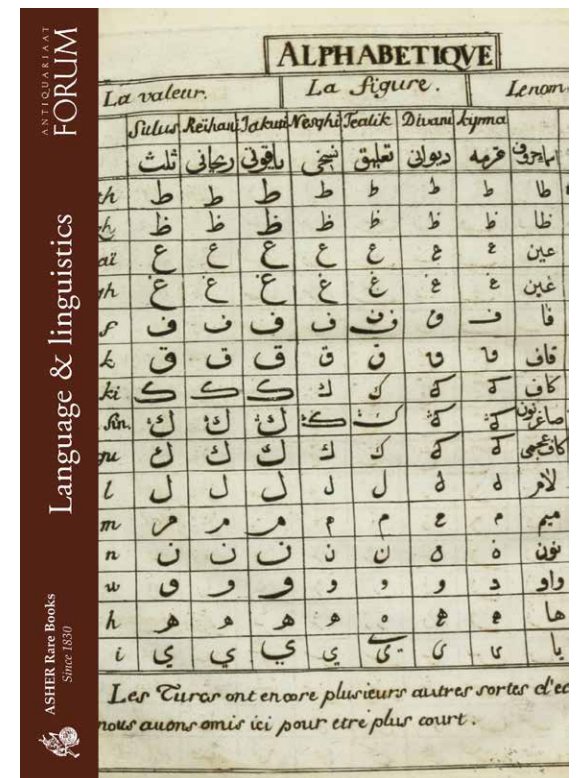 ANTIQUARIAAT
FORUM
Language & linguistics
ASHER Rare Books
Since 1830
ALPHABETIQVE
La valeur. La figure. Le nom
Sulus Reïhani Jakuti Nesghi Tealik Divani kyrma
ثلث ريحانی ياقوتی نسخی تعليق ديوانی قرمه
th ط ط ط ط ط ط ط طا
ظ ظ ظ ظ ظ ظ ظ ظا
aï ع ع ع ع ع ع ع عين
gh غ غ غ غ غ غ غ غين
f ف ف ف ف ف ف ف فا
k ق ق ق ق ق ق ق قاف
ki ك ك ك ك ك ك ك كاف
ڭ ڭ ڭ ڭ ڭ ڭ ڭ صاغر نون
gu ك ك ك ك ك ك ك كاف عجمی
l ل ل ل ل ل ل ل لام
m م م م م م م م ميم
n ن ن ن ن ن ن ن نون
w و و و و و و و واو
h ه ه ه ه ه ه ه ها
i ي ي ي ي ي ي ي يا
Les Turcs ont encore plusieurs autres sortes d'ec
nous auons omis ici pour etre plus court.